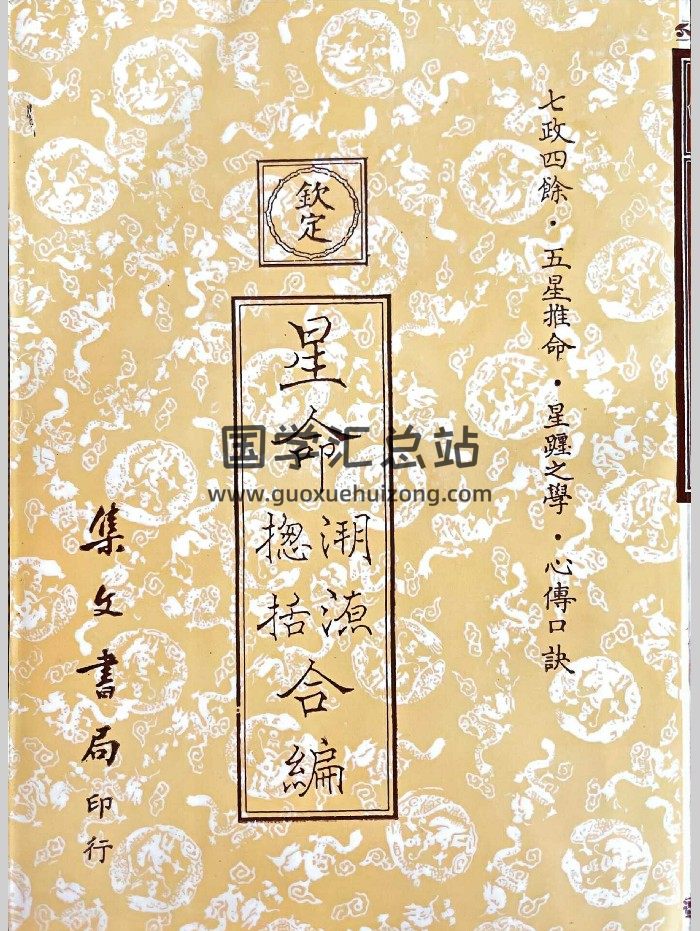 七政四餘・五星推命・星躔之學・心傳口訣
欽定
星命
溯源
搃括
合編
集文書局印行
国学汇总站
www.guoxuehuizong.com